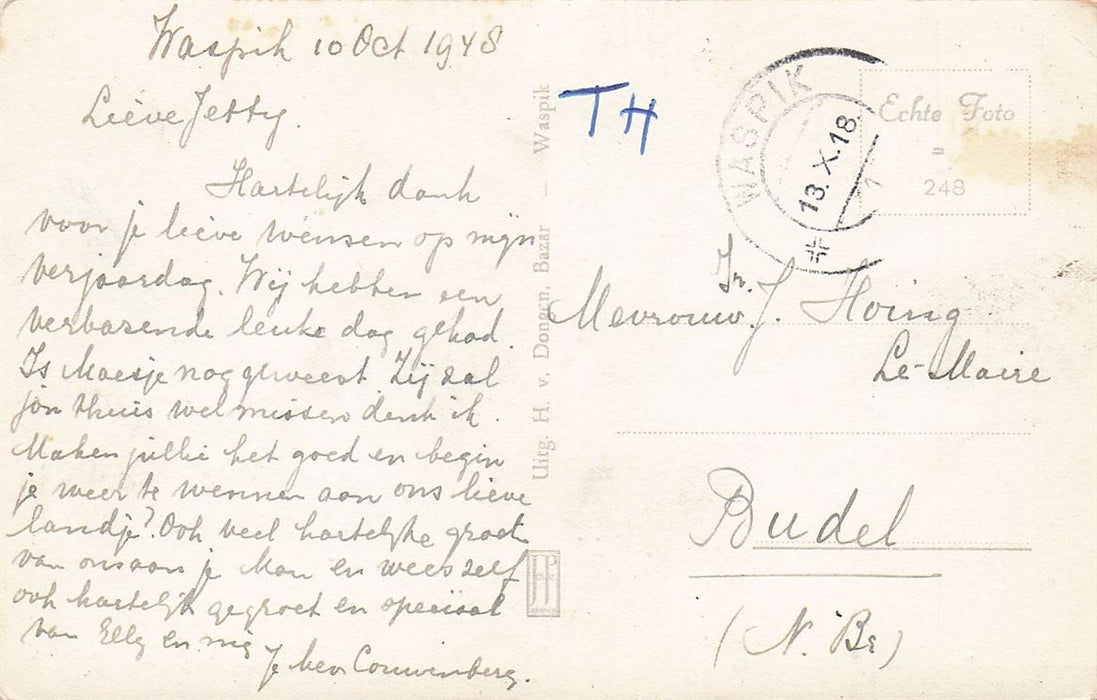 Waspik 10 Oct 1948
Lieve Jetty.
Hartelijk dank
voor je lieve wensen op mijn
verjaardag. Wij hebben een
verbazende leuke dag gehad.
Is Maesje nog geweest Zij zal
jou thuis wel missen denk ik.
Maken jullie het goed en begin
je weer te wennen aan ons lieve
landje? Ook veel hartelijke groet
van ons aan je Man en wees zelf
ook hartelijk gegroet en speciaal
van Elly en mij
Mevr Couwenberg.
Uitg. H. v. Dongen, Bazar – Waspik
HP
TH
WASPIK
13.X.18.
Echte Foto
=
248
Mevrouw. J. Hoing
Le-Maire
Budel
(N. Br)